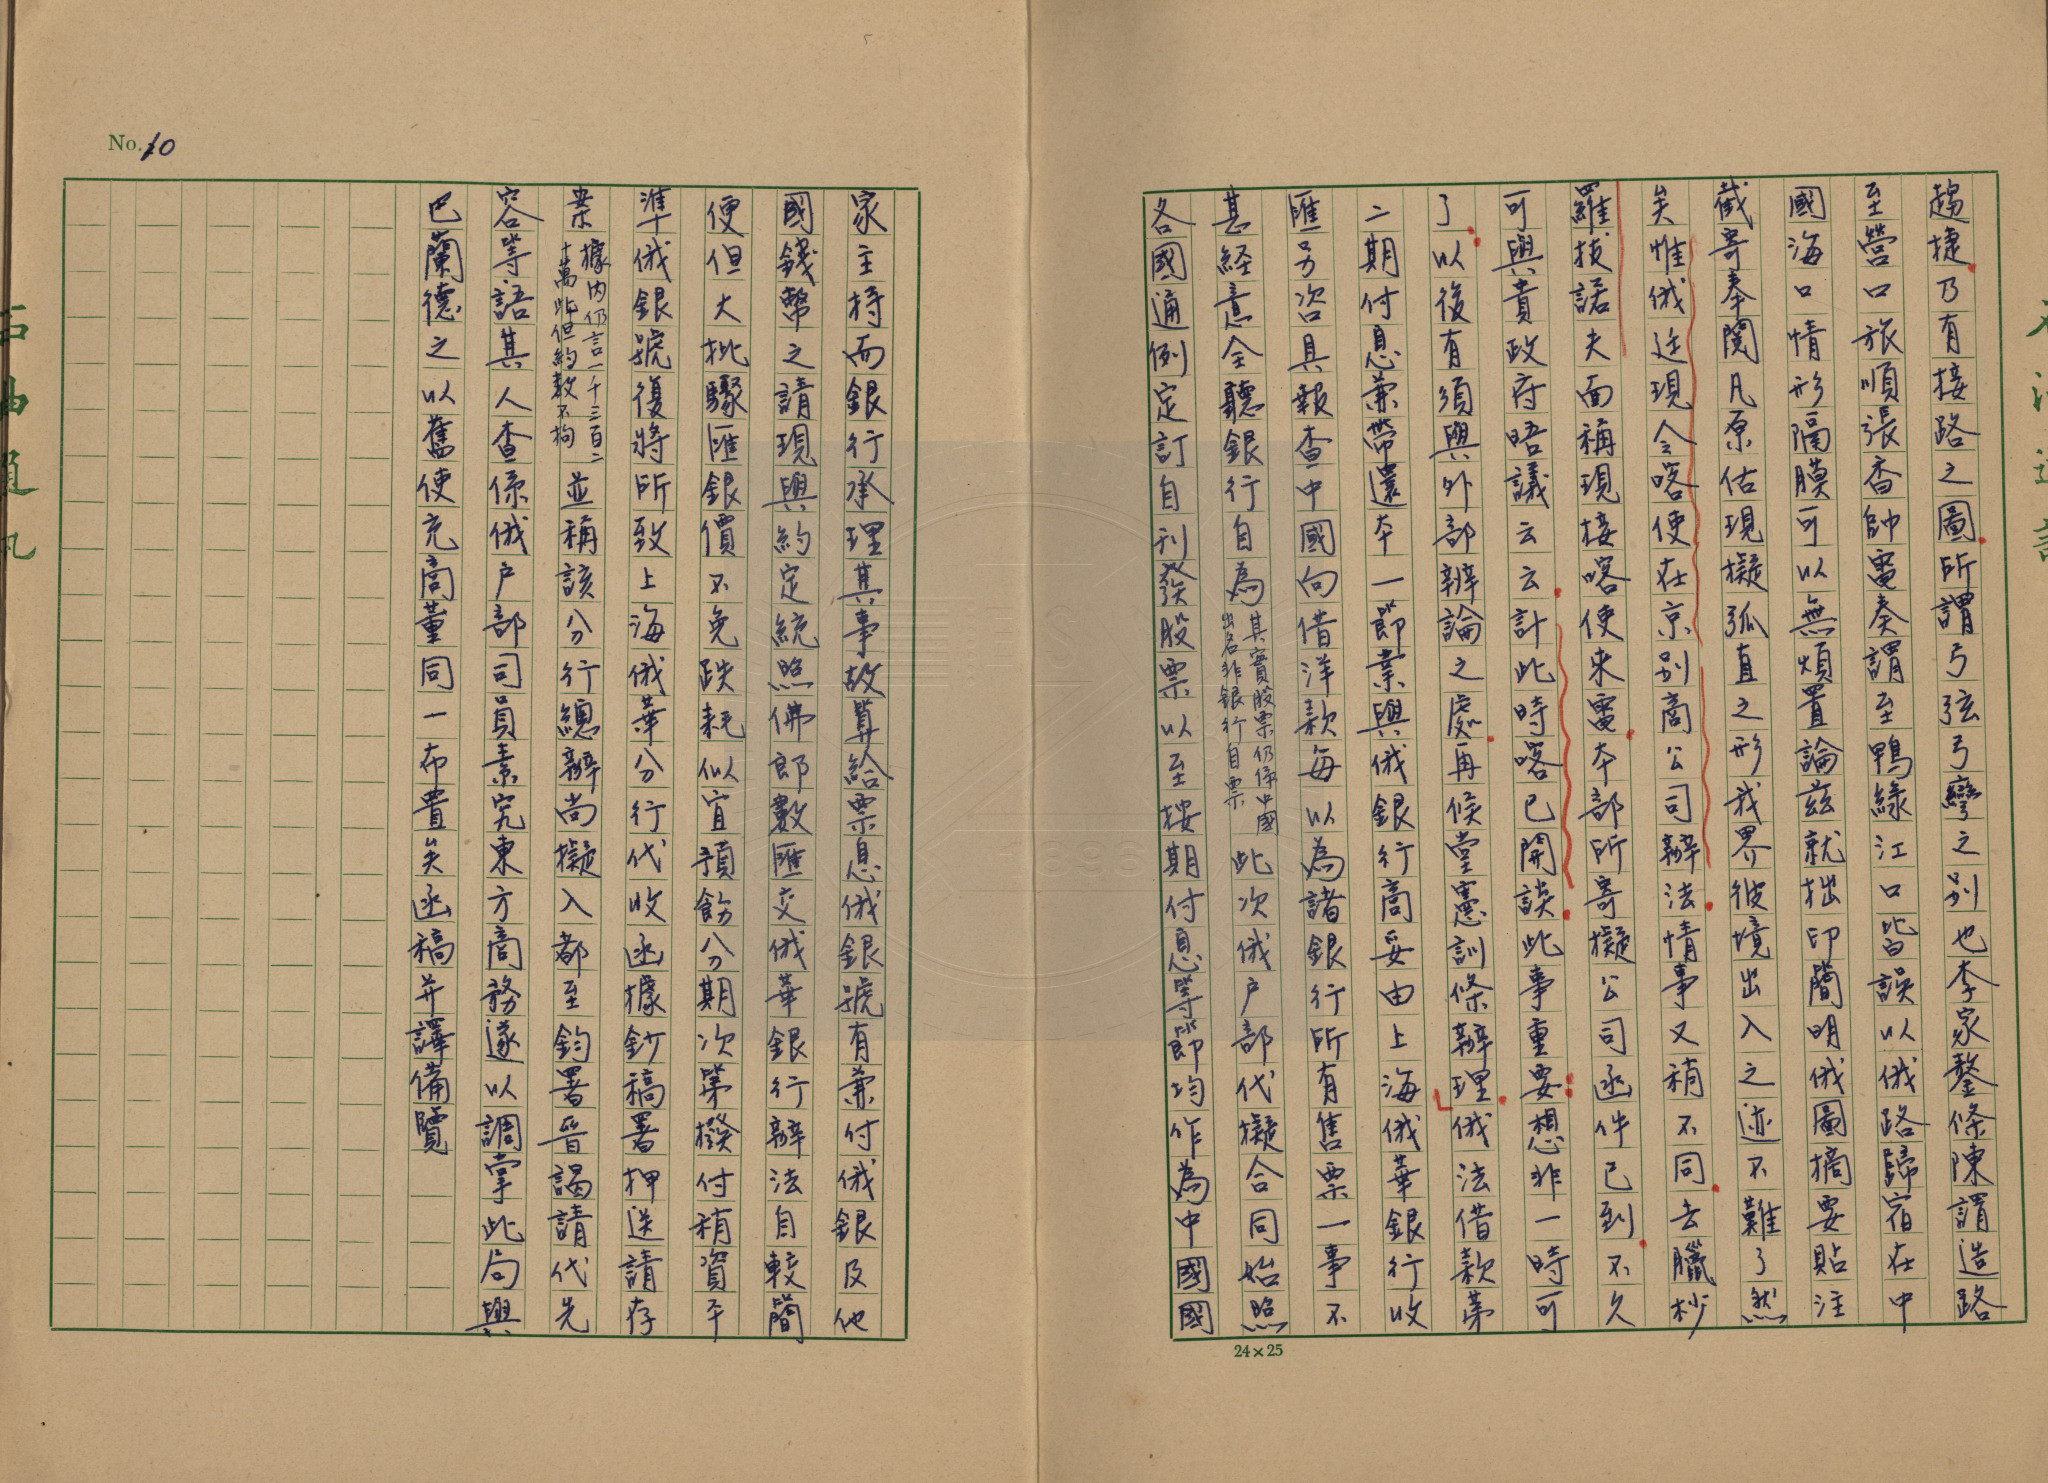 趨捷乃有接路之圖所謂弓弦弓彎之別也李家鏊條陳謂造路
至營口旅順張香帥電奏謂至鴨綠江口皆誤以俄路歸宿在中
國海口情形隔膜可以無煩置論茲就拙印簡明俄圖摘要貼注
截寄奉閱凡原估現擬弧直之形我界彼境出入之迹不難了然
矣惟俄廷現令喀使在京別商公司辦法情事又稍不同去臘杪
羅拔諾夫面稱現接喀使來電本部所寄擬公司函件已到不久
可與貴政府晤議云云計此時喀已開談此事重要想非一時可
了以後有須與外部辦論之處再候堂憲訓條辦理俄法借款第
二期付息兼帶還本一節業與俄銀行商妥由上海俄華銀行收
匯另次具報查中國向借洋款每以為諸銀行所有售票一事不
甚経意全聽銀行自為其實股票仍係中國出名非銀行自票此次俄戶部代擬合同始照
各國通例定訂自刊發股票以至按期付息等節均作為中國國
No.10
家主持而銀行承理其事故算給票息俄銀號有兼付俄銀及他
國錢幣之請現與約定統照佛郎數匯交俄華銀行辦法自較簡
便但大批驟匯銀價不免跌耗似宜預飭分期次第撥付稍資平
準俄銀號復將所致上海俄華分行代收函據鈔稿署押送請存
案據內仍言一千三百二十萬此但約數不拘並稱該分行總辦尚擬入都至鈞署晉謁請代先
容等語其人查係俄戶部司員素究東方商務遂以調掌此局與
巴蘭德之以舊使充商董同一布置矣函稿并譯備覽
24×25